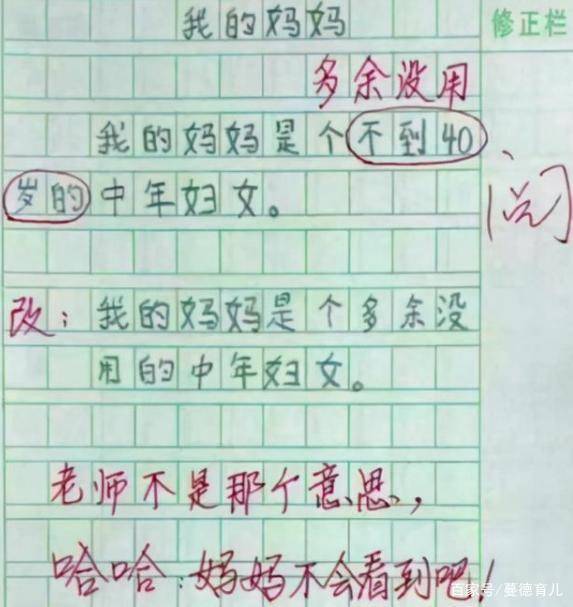 我的妈妈
修正栏
多余没用
我的妈妈是个不到40
岁的中年妇女。
阅
改：我的妈妈是个多余没
用的中年妇女。
老师不是那个意思，
哈哈：妈妈不会看到吧！
百家号/蔓德育儿